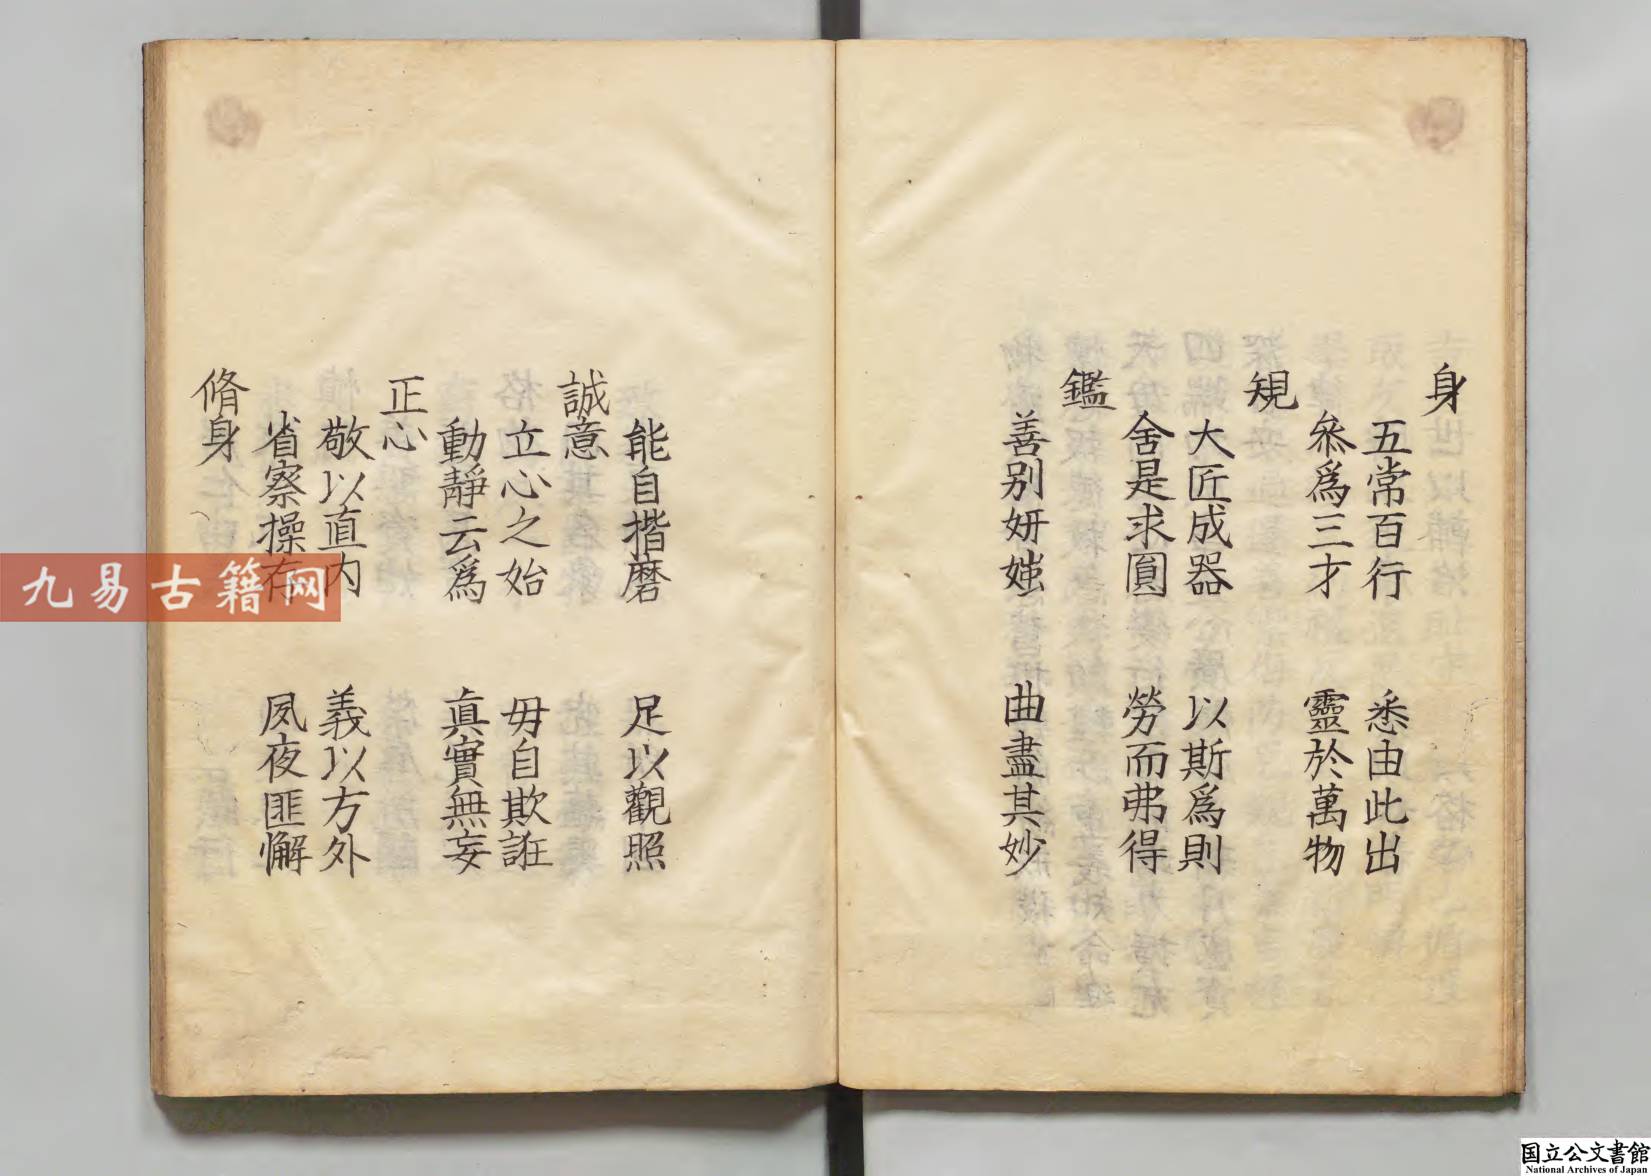 身
五常百行 悉由此出
叅爲三才 靈於萬物
規
大匠成器 以斯爲則
舍是求圓 勞而弗得
鑑
善别妍媸 曲盡其妙
能自揩磨 足以觀照
誠意
立心之始 毋自欺誑
動靜云爲 眞實無妄
正心
敬以直内 義以方外
省察操存 夙夜匪懈
脩身
九易古籍网
国立公文書館
National Archives of Japan